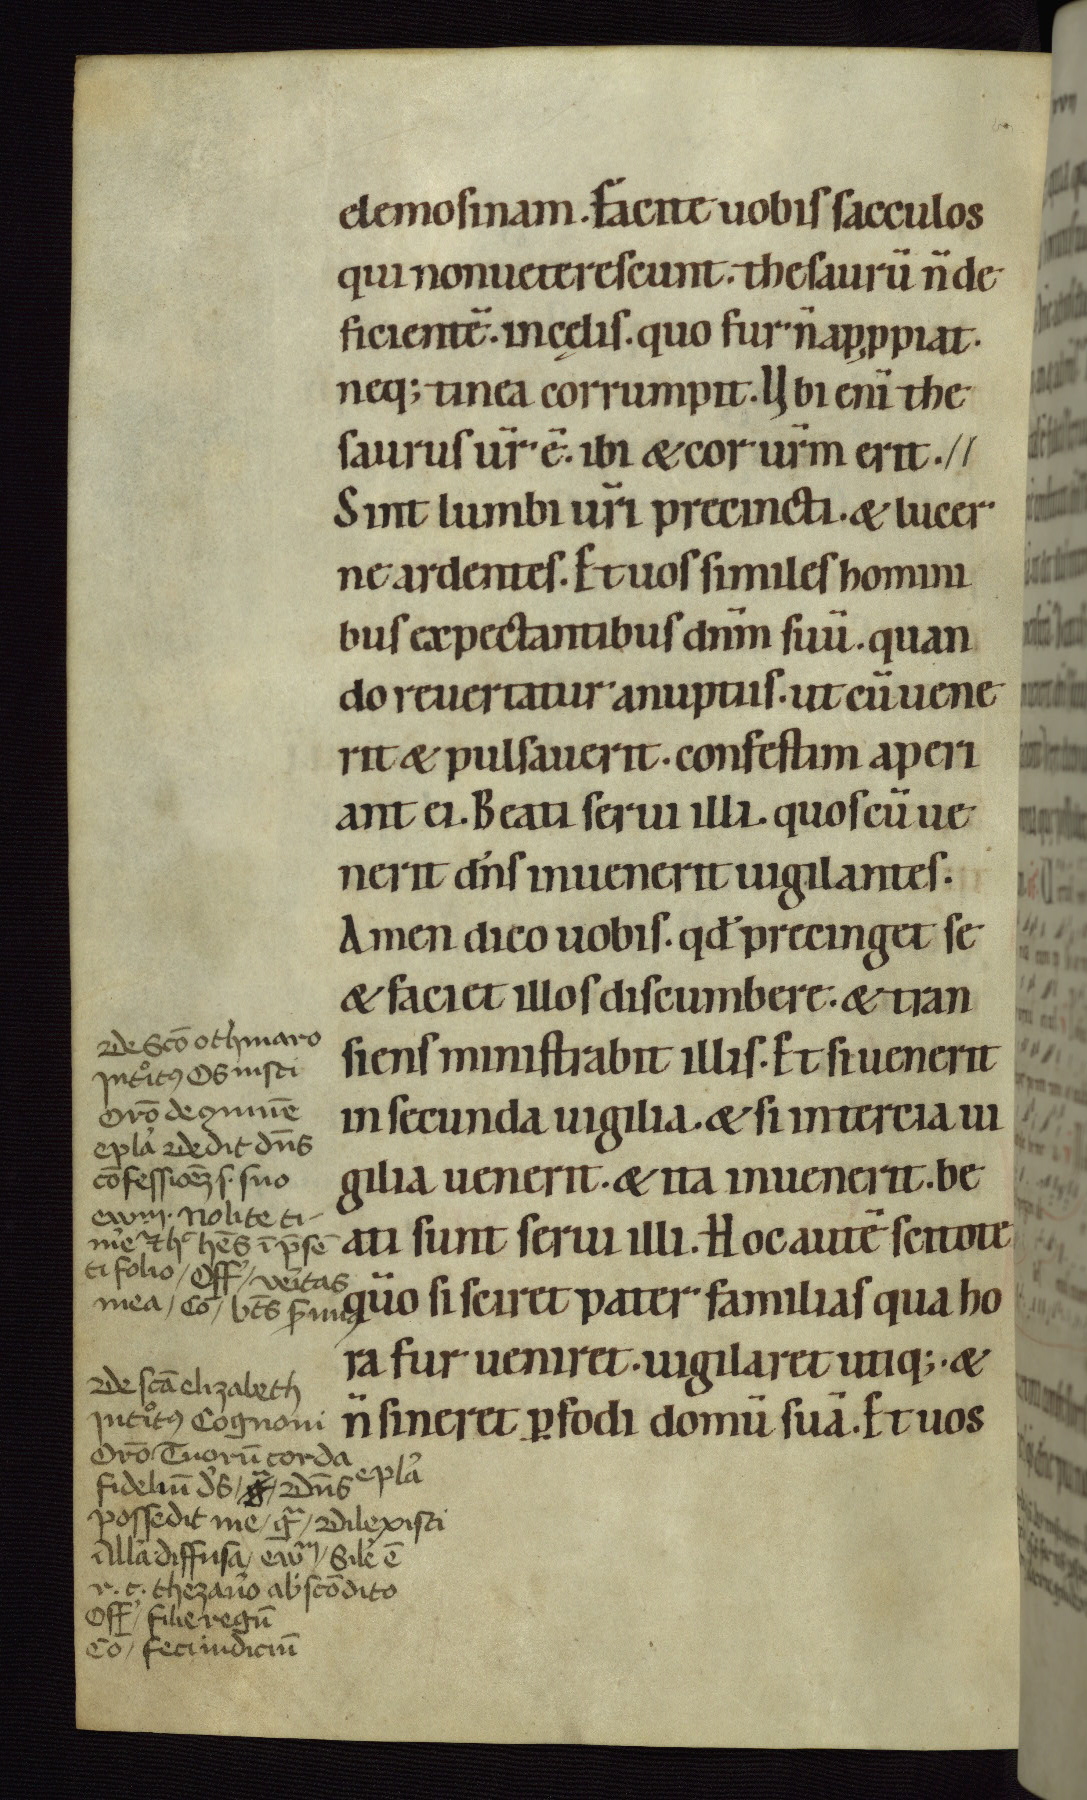 elemosinam. Facite uobis sacculos
qui non ueterescunt. thesaurū n̄ de
ficientē. in cęlis. quo fur n̄ apꝓpiat.
neq; tinea corrumpit. Vbi enī the
saurus ur̄ ē. ibi & cor ur̄m erit. //
Sint lumbi ur̄i precincti. & lucer
ne ardentes. Et uos similes homini
bus expectantibus dn̄m suū. quan
do reuertatur a nuptiis. ut cū uene
rit & pulsauerit. confestim aperi
ant ei. Beati serui illi. quos cū ue
nerit dn̄s inuenerit uigilantes.
Amen dico uobis. qđ precinget se
& faciet illos discumbere. & tran
siens ministrabit illis. Et si uenerit
in secunda uigilia. & si in tercia ui
gilia uenerit. & ita inuenerit. be
ati sunt serui illi. Hoc autē scitote
qūo si sciret pater familias qua ho
ra fur ueniret. uigilaret utiq;. &
n̄ sineret ꝑfodi domū suā. Et uos
De Scō othmaro
Os iusti
Orō de
epla dedit dn̄s
cōfessioēʒ s. suo
Nolite ti-
hēs ī p̄sē
ti folio / Off / veritas
mea / Co / bt̄s
De scā elizabeth
Cognoui
Orō Tuorū corda
fideliū ds / dn̄s epla
possedit me / gr̄ / Dilexisti
Allā diffusa / / Sile ē
r. c. thezauro abscōdito
Off / filie regū
Co / feci iudiciū